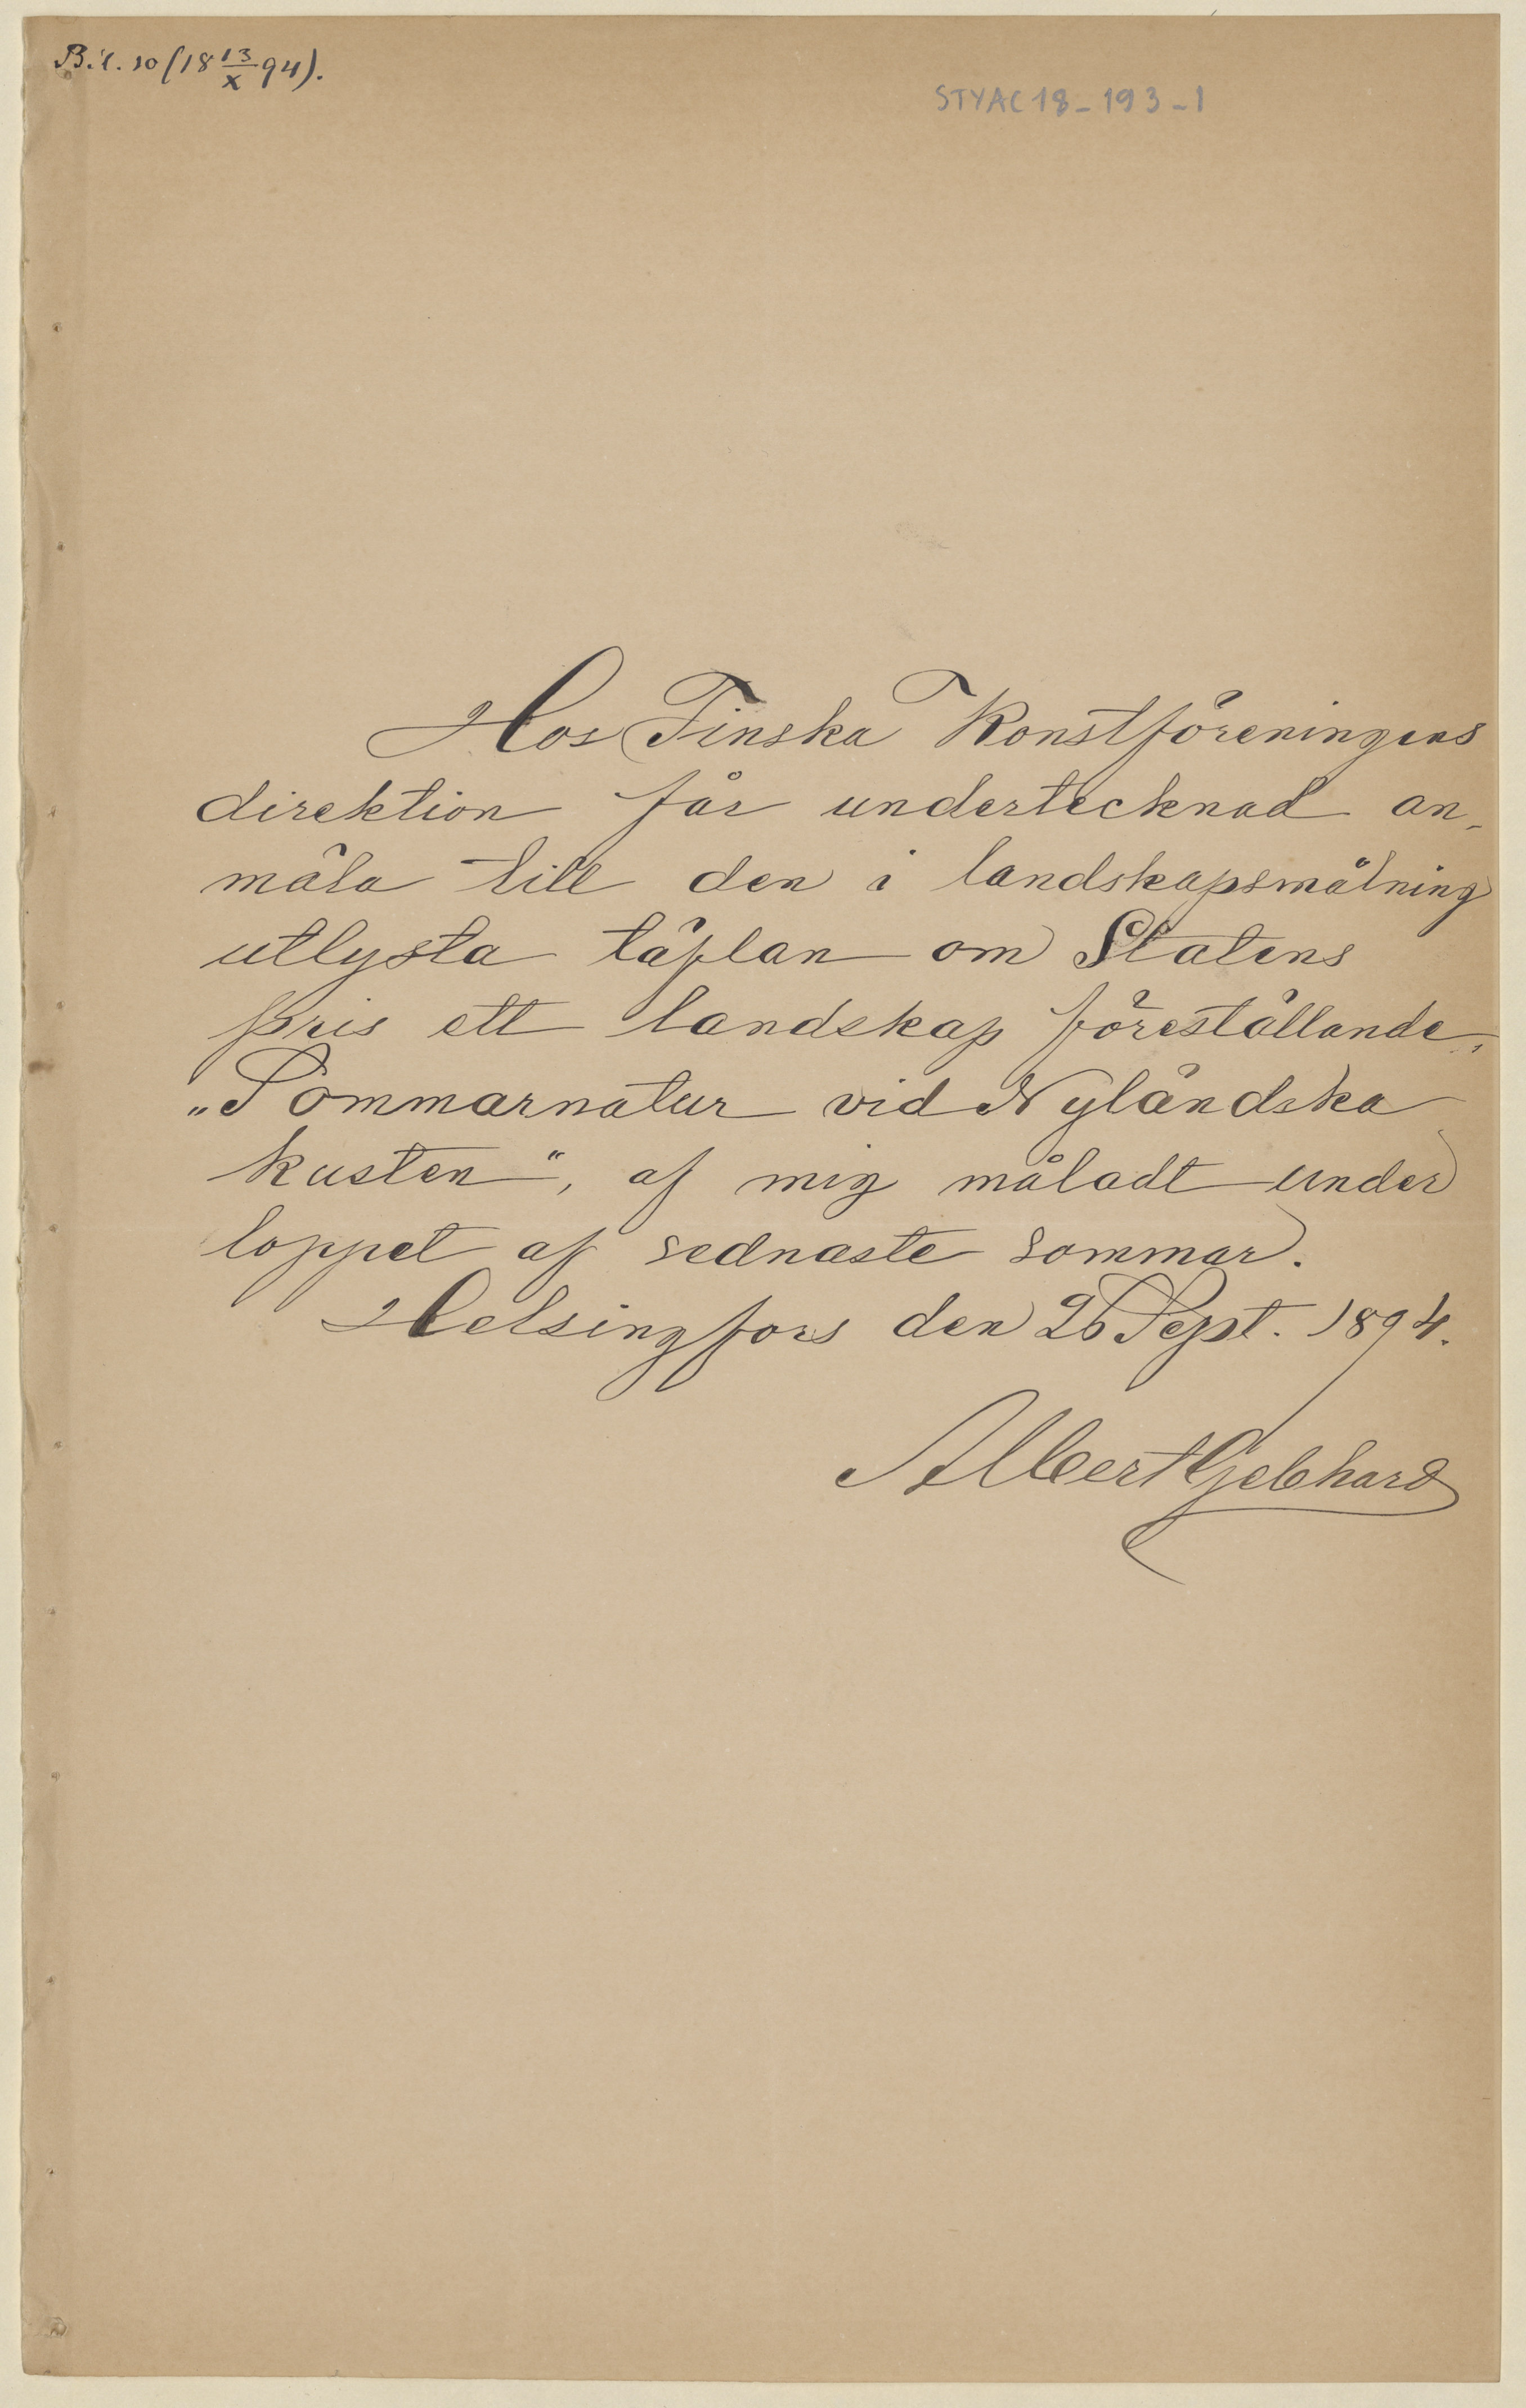 Bil. 10 (18 13/X 94).
STYAC18-193-1
Hos Finska Konstföreningens
direktion får undertecknad an-
mäla till den i landskapsmålning
utlysta täflan om Statens
pris ett landskap föreställande,
„Sommarnatur vid Nyländska
kusten“, af mig måladt under
loppet af sednaste sommar.
Helsingfors den 26 Sept. 1894.
Albert Gebhard